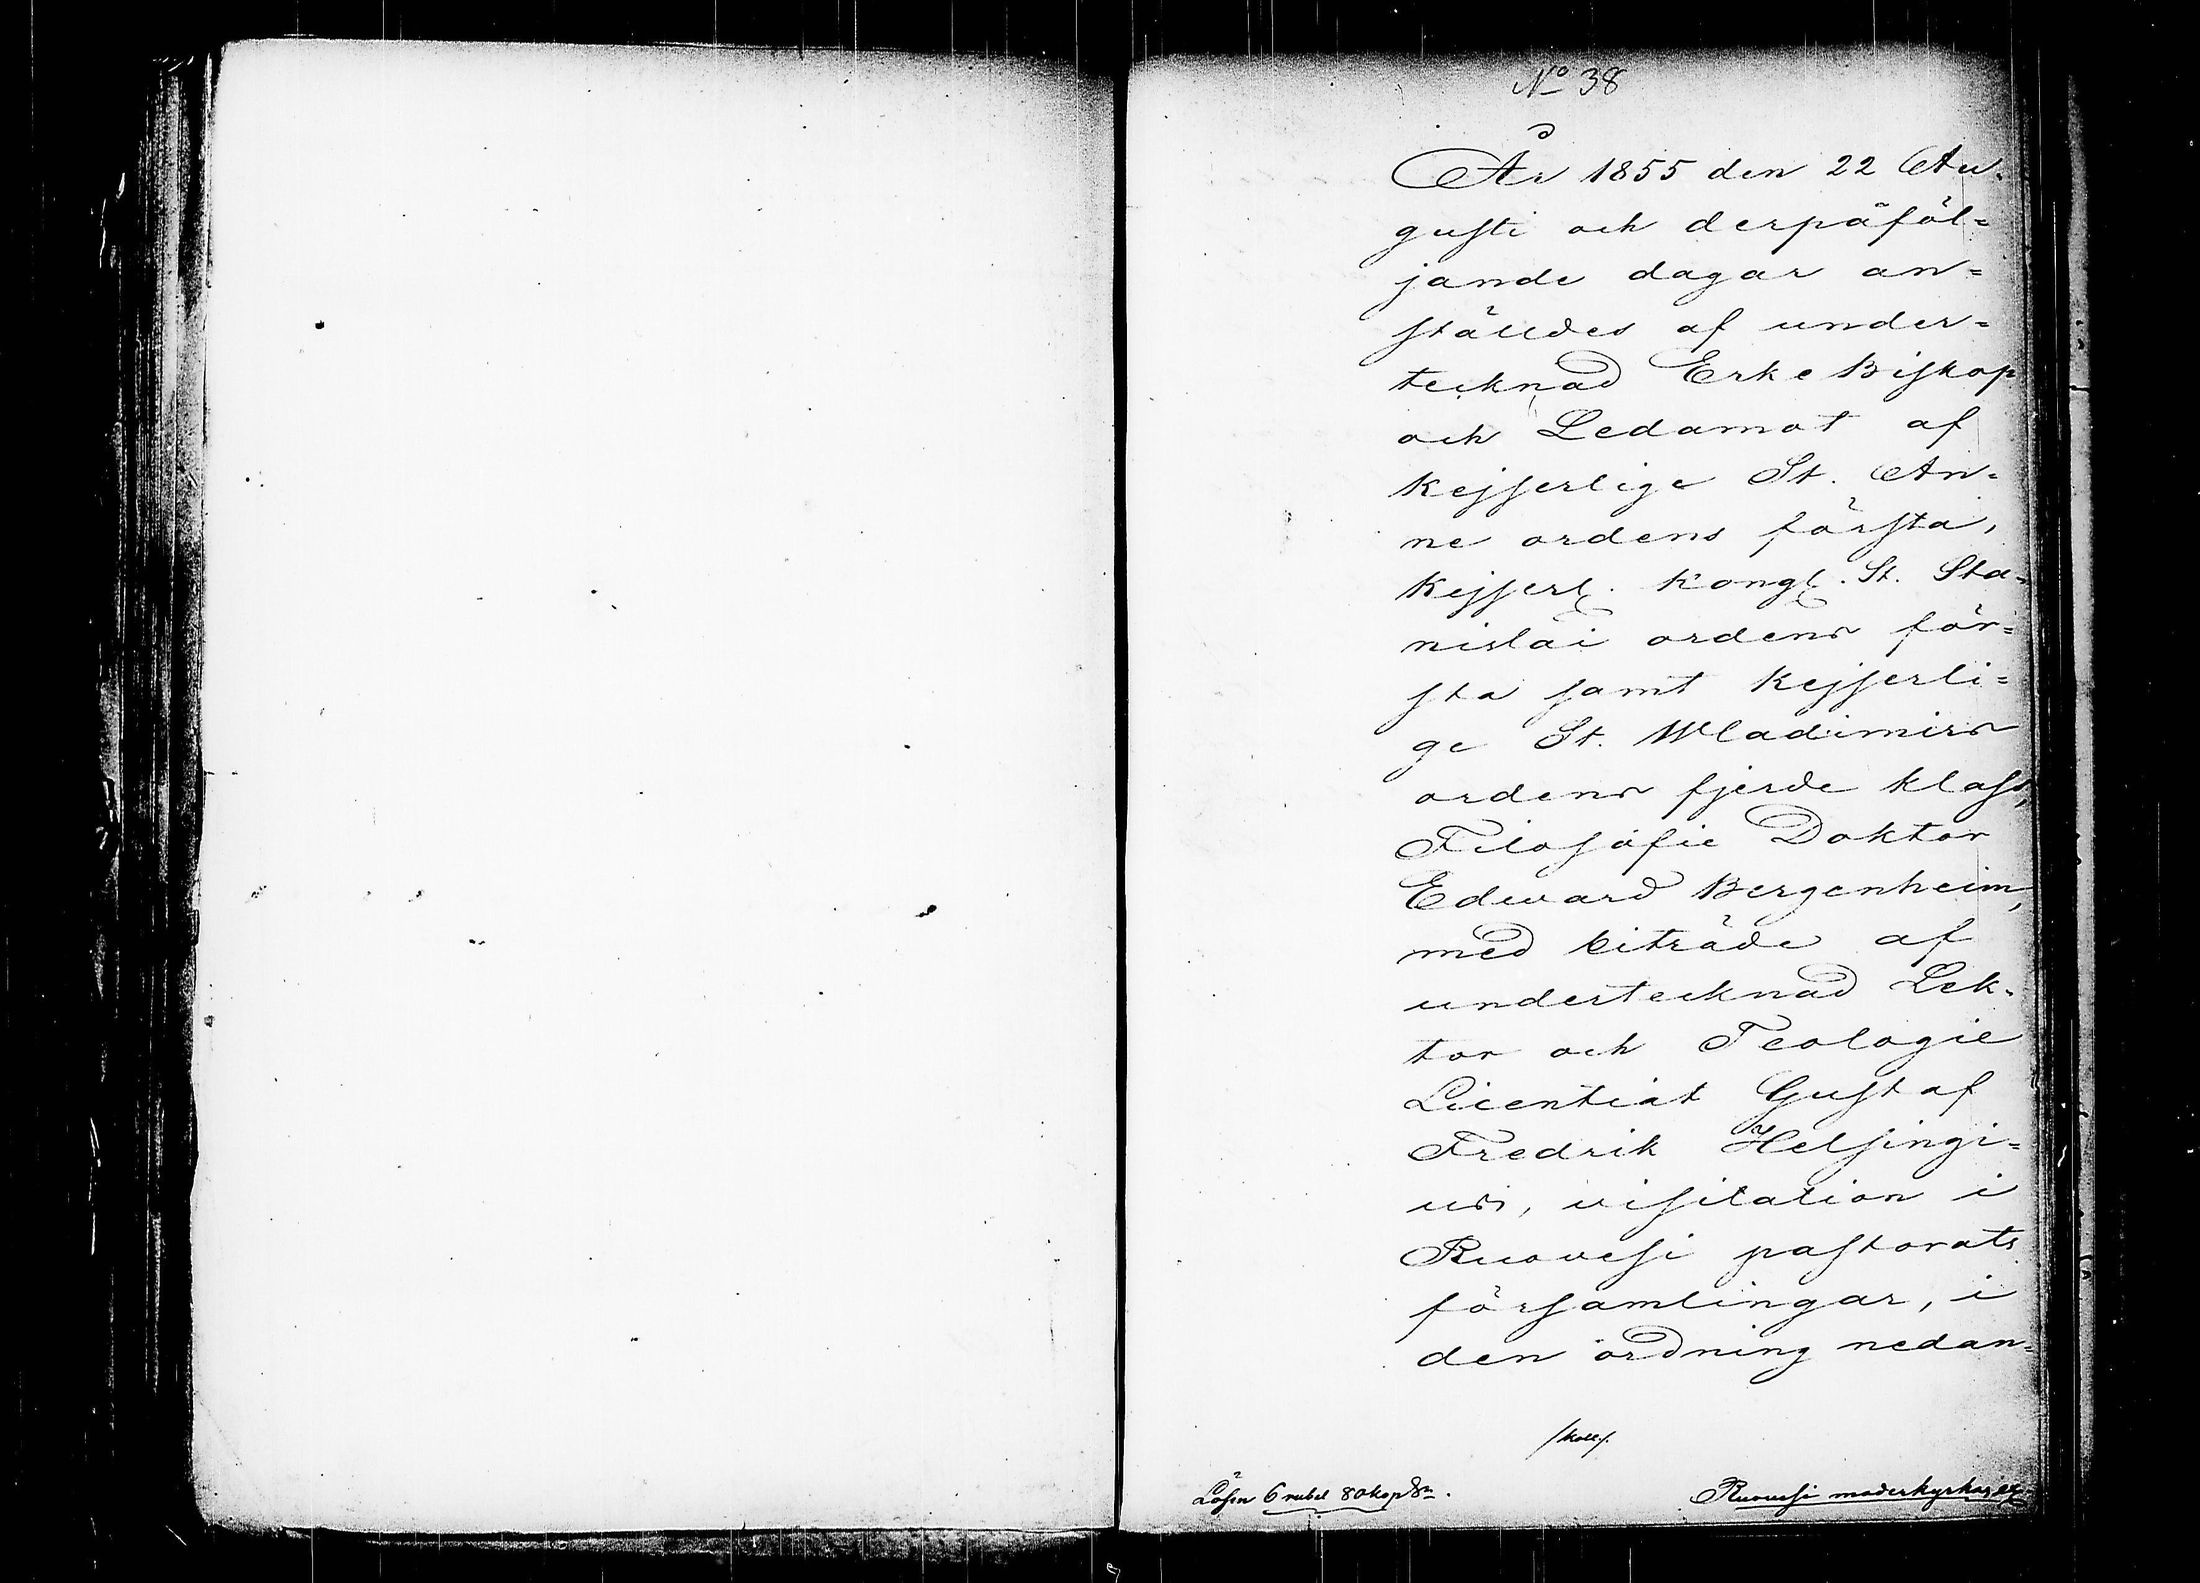 No 38
År 1855 den 22 Au-
gusti och derpåföl=
jande dagar an=
ställdes af under=
tecknad Erke Biskop
och Ledamot af
Kejserlige St. An=
ne ordens första,
Kejserl. Kongl. St. Sta=
nislai ordens för=
sta samt Kejserli=
ge St. Wladimirs
ordens fjerde klass,
Filosofie Doktor
Edward Bergenheim,
med biträde af
undertecknad Lek-
tor och Teologie
Licentiat Gustaf
Fredrik Helsingi=
us, visitation i
Ruovesi pastorats
församlingar, i
den ordning nedan=
/Koll/.
Lösen 6 rubel 80 kop Sr.
Ruovesi moderkyrkas ex